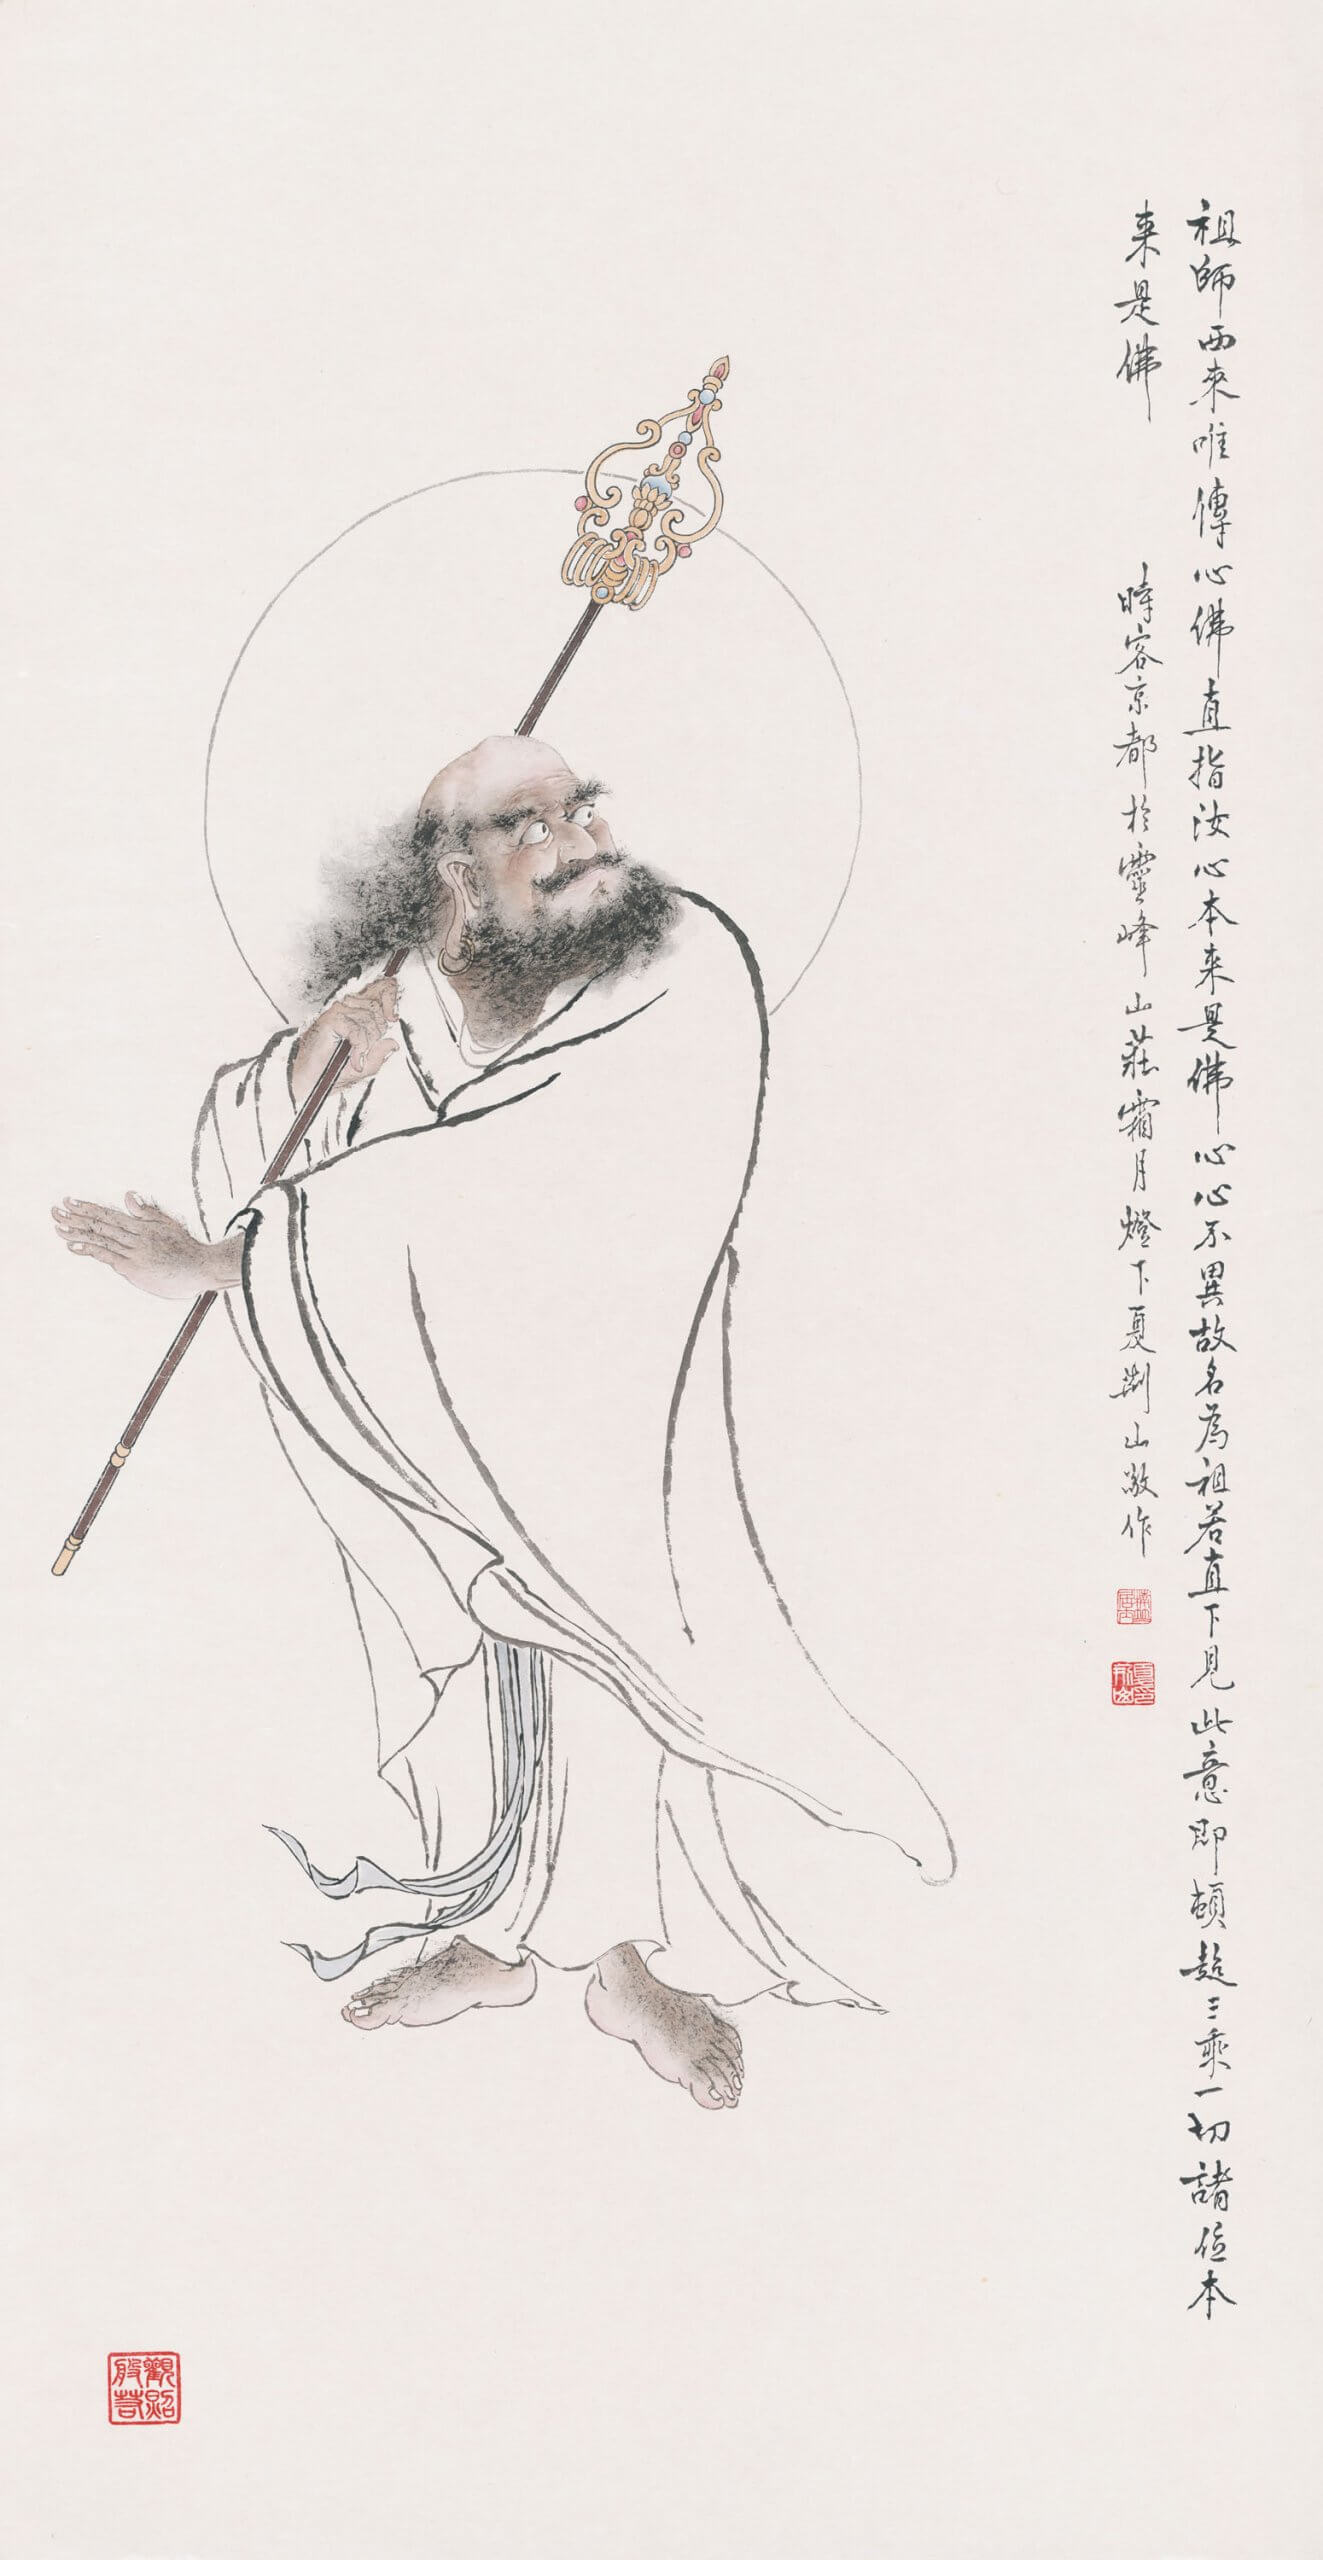 祖師西來唯傳心佛直指汝心本來是佛心心不異故名為祖若直下見此意即頓超三乘一切諸位本
來是佛
時客京都於靈峰山莊霜月燈下夏荆山敬作
觀照般若